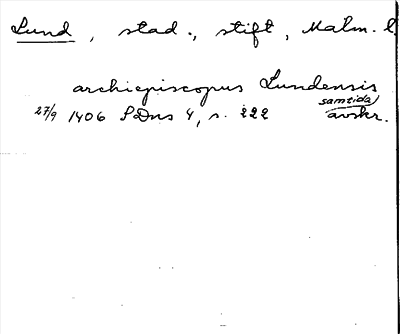 Lund, stad., stift, Malm. l.
archiepiscopus Lundensis
27/9 1406 SDns 4, s. 222 samtida avskr.